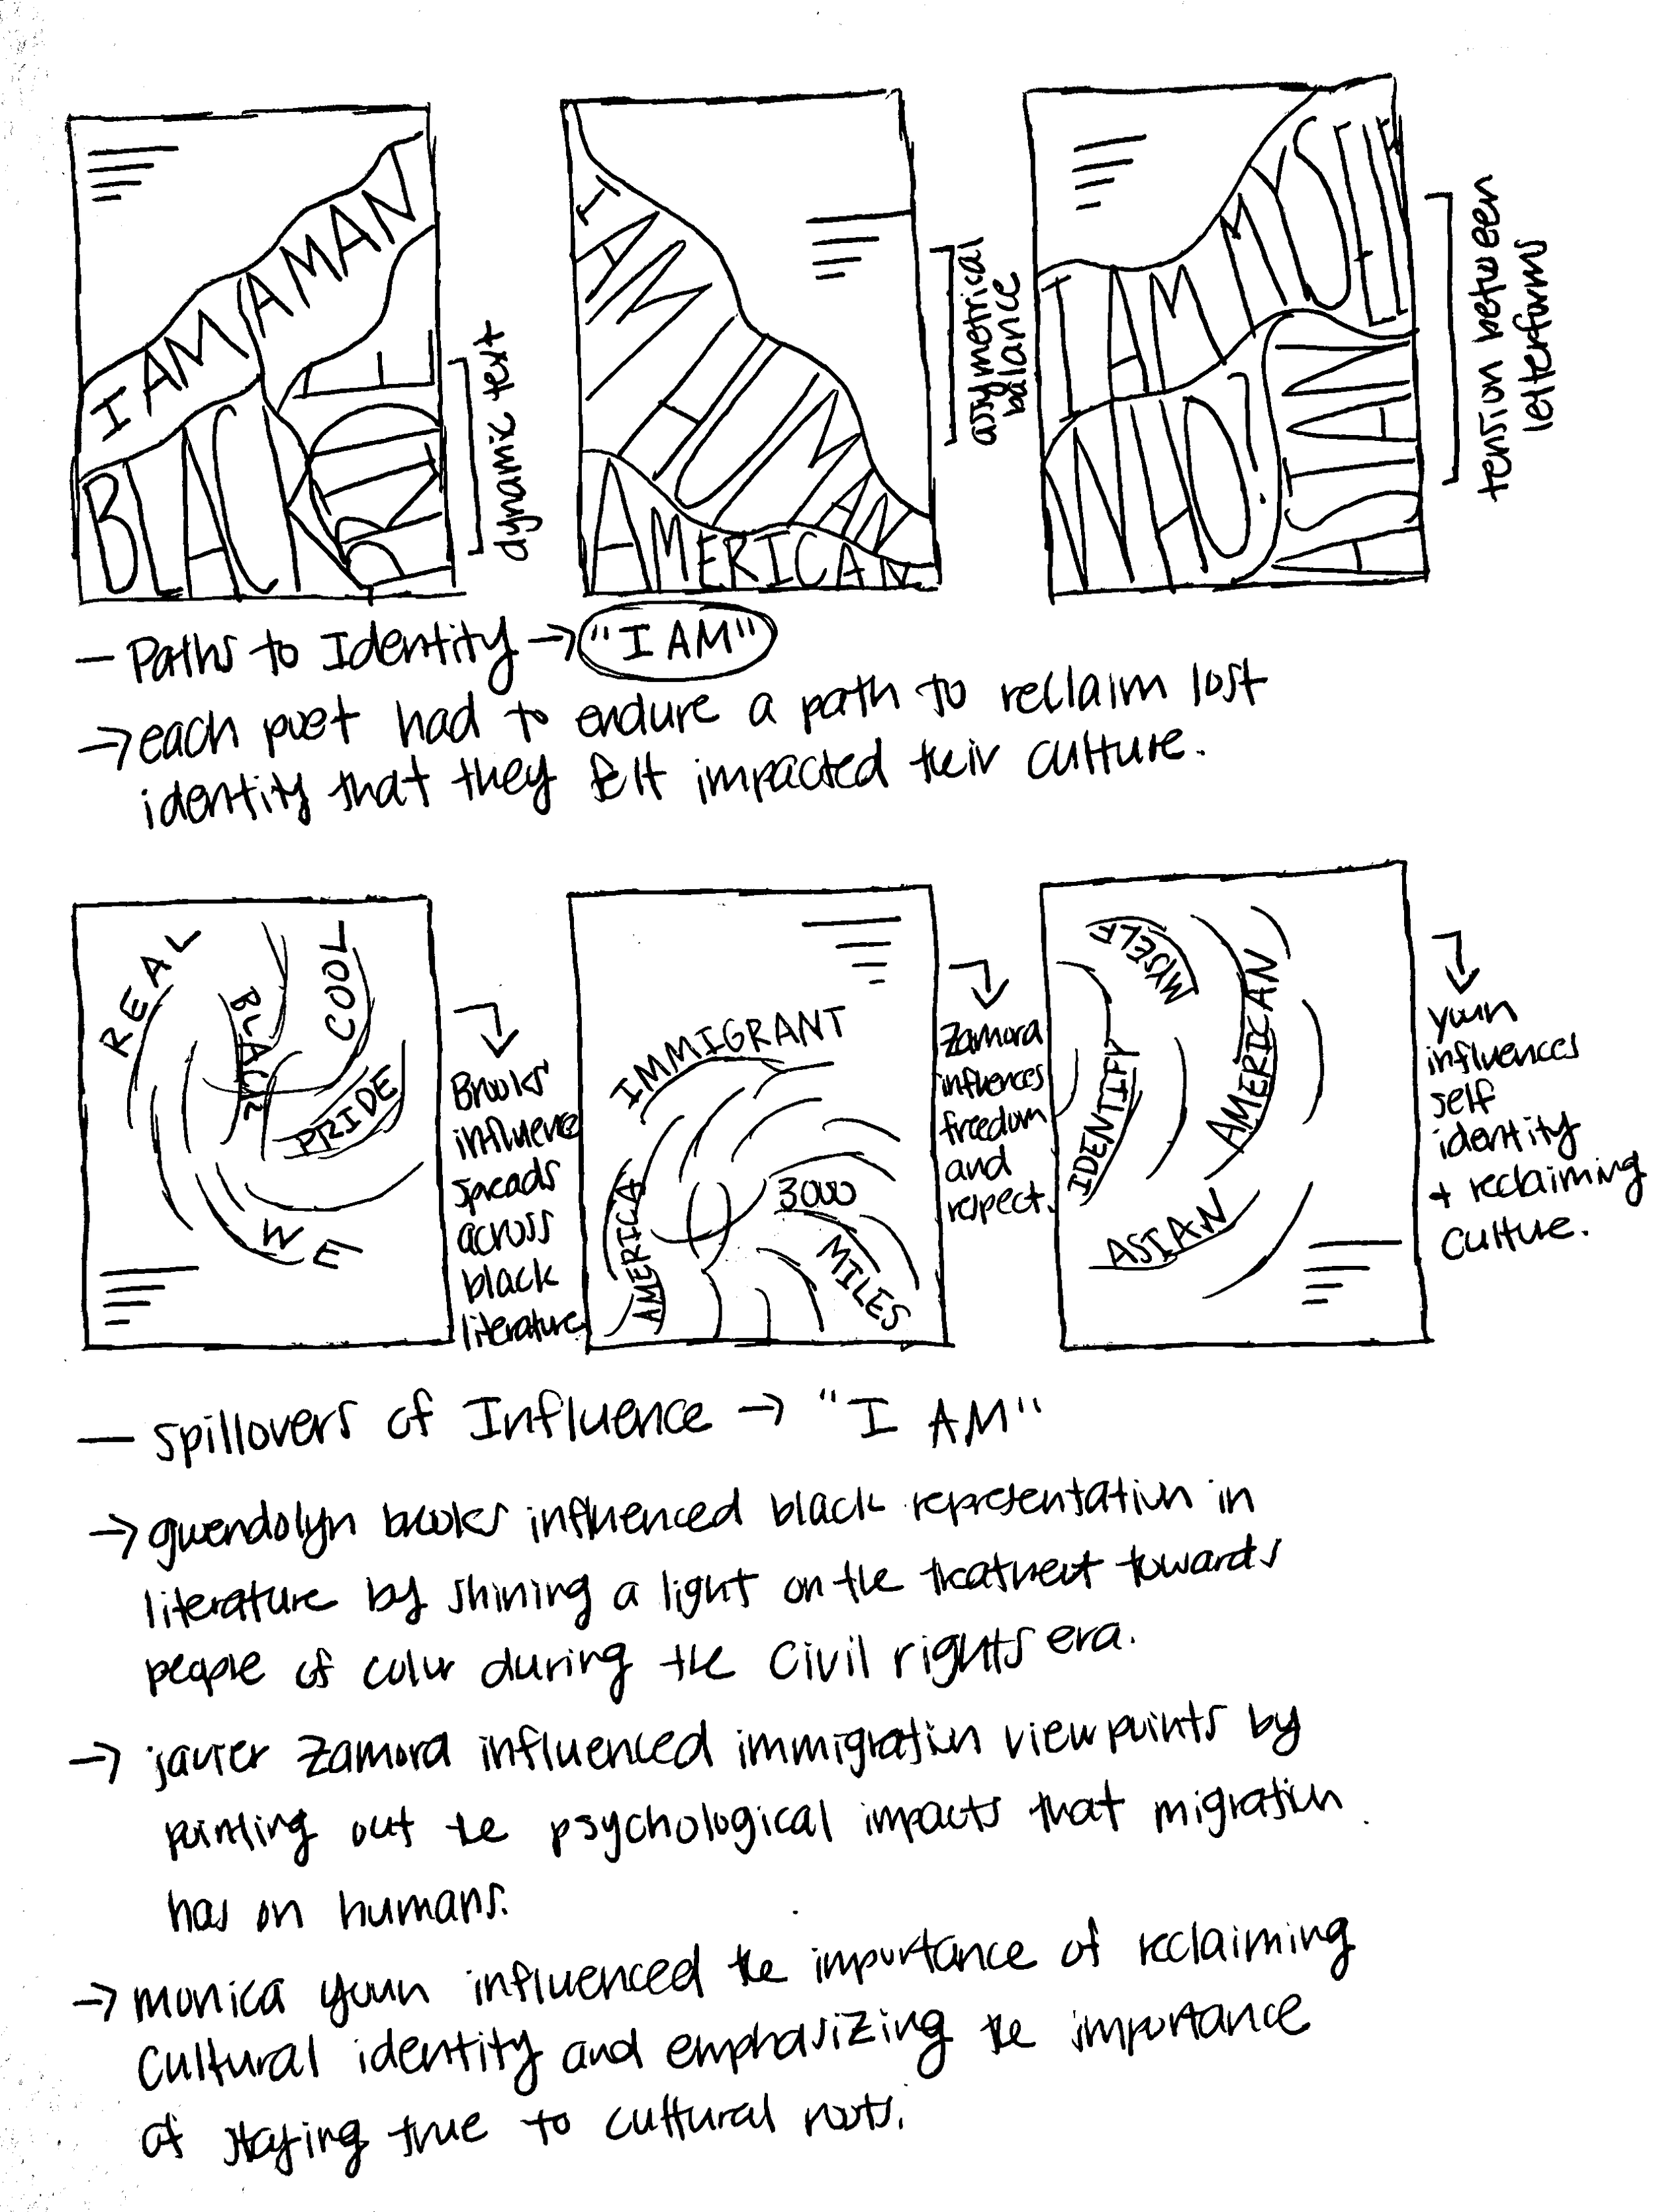 I AM A MAN
BLACK
PRIDE
dynamic text
I AM HUMAN
AMERICAN
assymetrical
balance
I AM MYSELF
WHO?
ASIAN
tension between
letterforms
- Paths to Identity → "I AM"
→ each poet had to endure a path to reclaim lost
identity that they felt impacted their culture.
REAL
BLACK
COOL
PRIDE
WE
Brooks
influence
spreads
across
black
literature
IMMIGRANT
AMERICA
3000
MILES
Zamora
influences
freedom
and
respect.
MYSELF
IDENTIFY
AMERICAN
ASIAN
youn
influences
self
identity
+ reclaiming
culture.
- Spillovers of Influence → "I AM"
→ gwendolyn brooks influenced black representation in
literature by shining a light on the treatment towards
people of color during the Civil rights era.
→ javier Zamora influenced immigration viewpoints by
pointing out the psychological impacts that migration
has on humans.
→ monica youn influenced the importance of reclaiming
cultural identity and emphasizing the importance
of staying true to cultural roots.